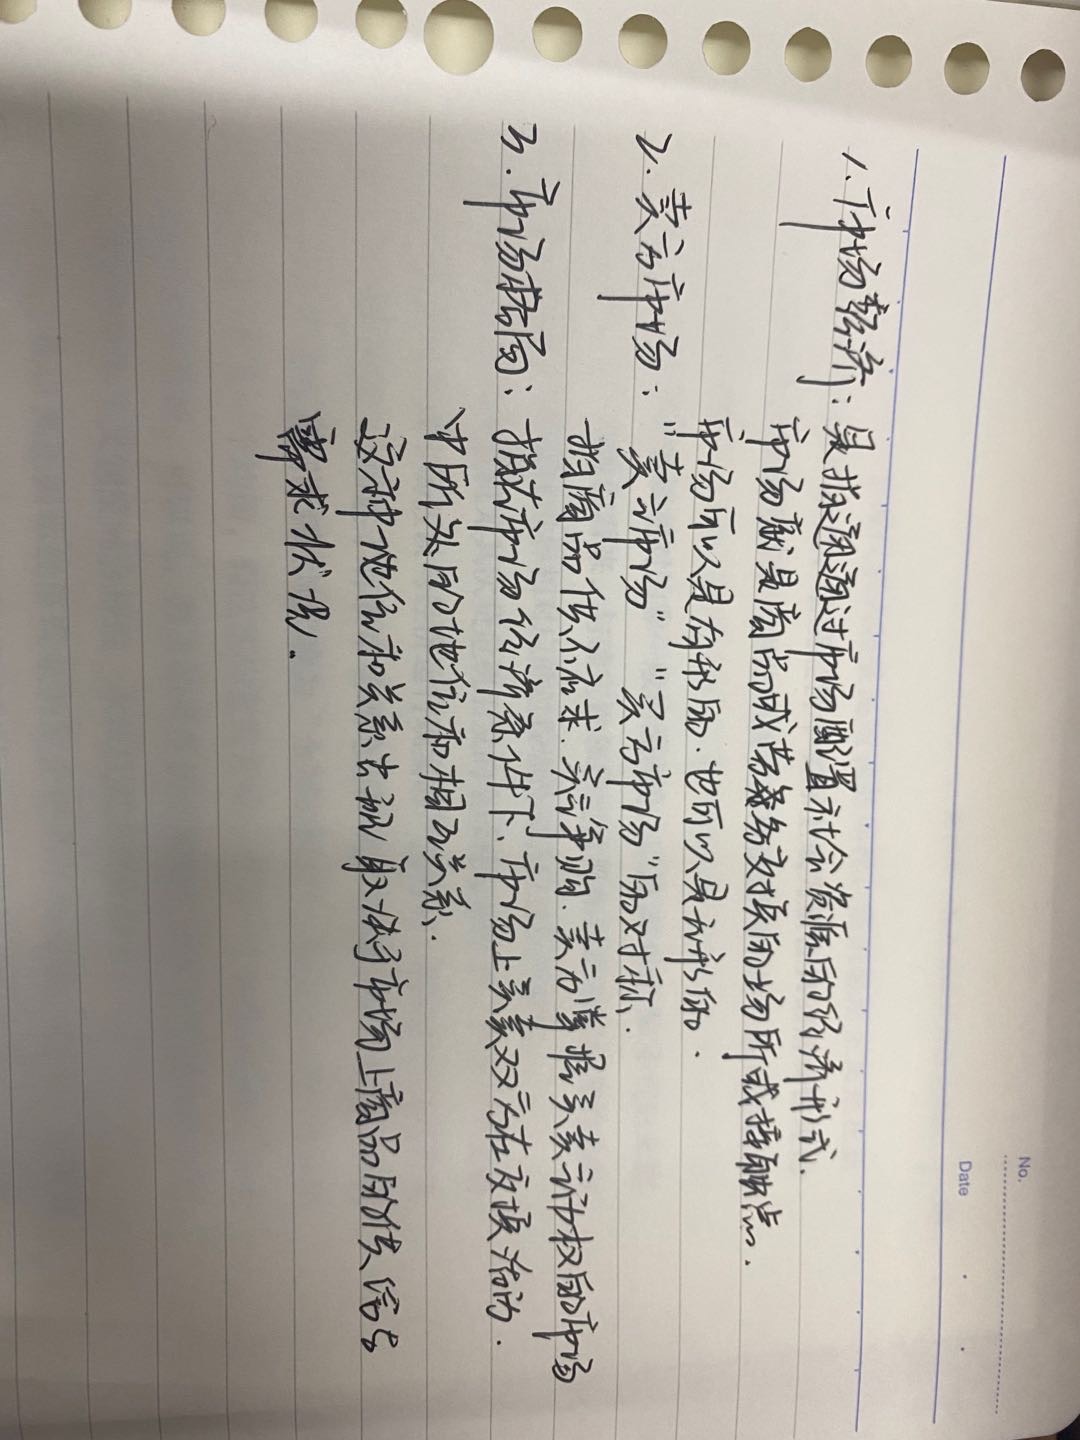 No.
Date
1. 市场经济: 是指通过市场配置社会资源的经济形式.
市场就是商品或劳务交换的场所或接触点.
市场可以是有形的. 也可以是无形的.
2. 卖方市场: "卖方市场" "买方市场"的对称.
指商品供不应求. 买方争购. 卖方掌握买卖主权的市场
3. 市场格局: 指在市场经济条件下、市场上买卖双方在交换活动.
中所处的地位和相互关系.
这种地位和关系出 取决于市场上商品的供给与
需求状况.